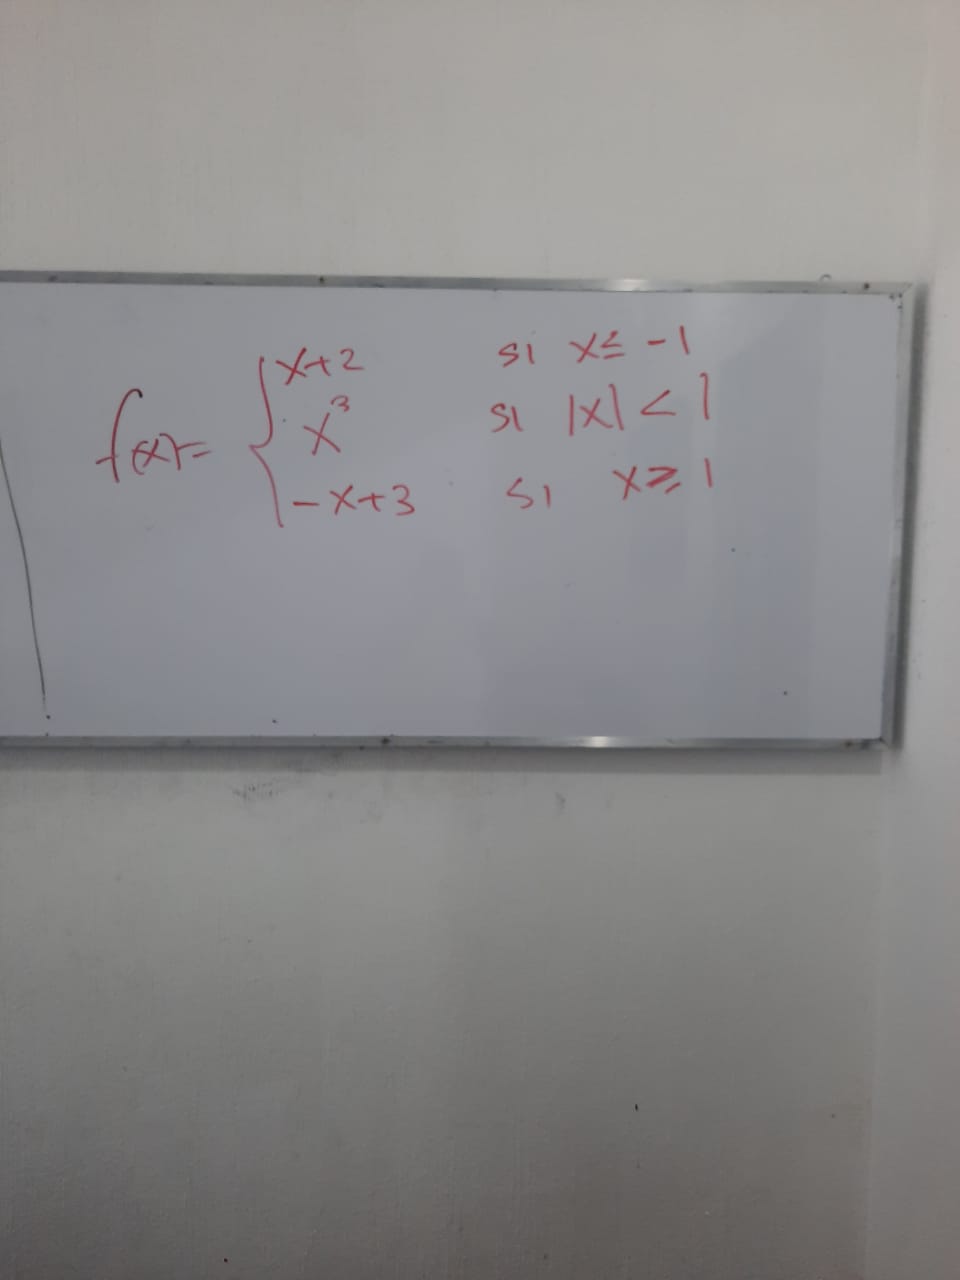 f(x)= { x+2 si x ≤ -1
x³ si |x| < 1
-x+3 si x ≥ 1